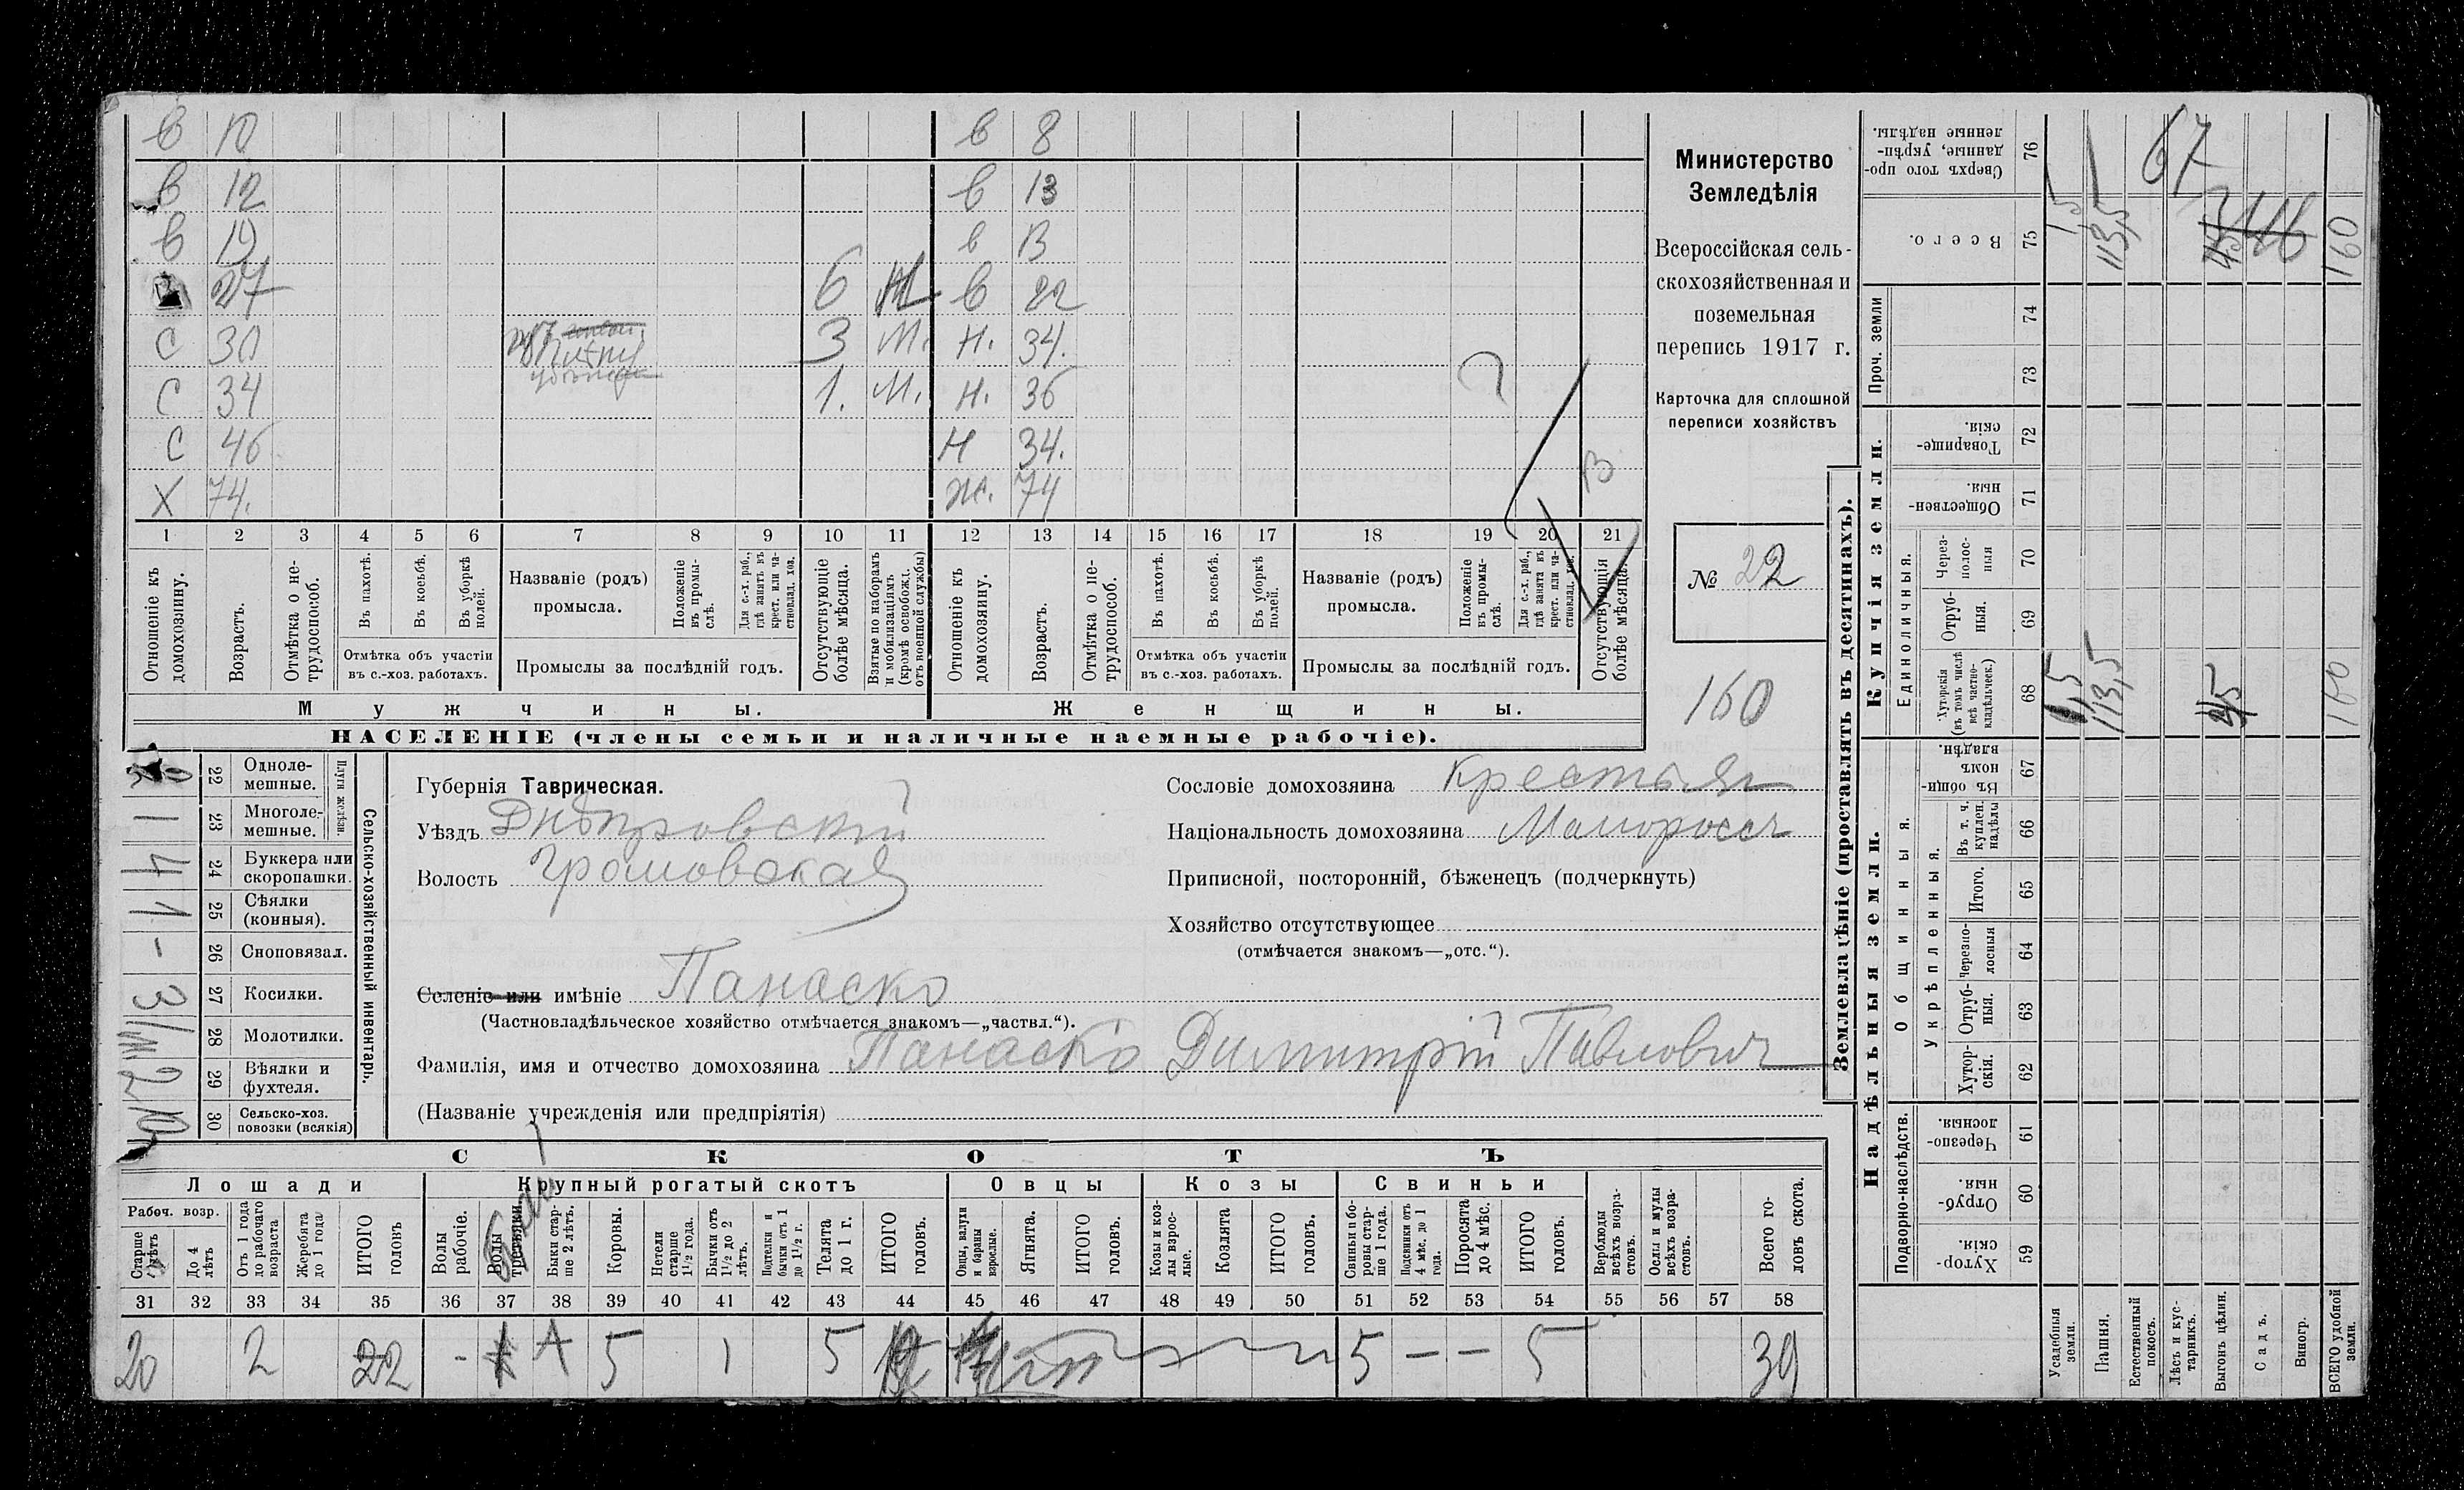 в 10 в 8
в 12 в 13
в 19 в 13
27 6 М в 22
С 30 3 М. Н. 34.
С 34 1. М. Н. 36
С 46 Н 34.
Х 74. Ж. 74
В
1 2 3 4 5 6 7 8 9 10 11 12 13 14 15 16 17 18 19 20 21
Отношеніе къ домохозяину.
Возрастъ.
Отмѣтка о нетрудоспособ.
Въ пахотѣ.
Въ косьбѣ.
Въ уборкѣ полей.
Отмѣтка объ участіи въ с.-хоз. работахъ.
Названіе (родъ) промысла.
Положеніе въ промыслѣ.
Для с.-х. раб., гдѣ занятъ въ крест. или частновлад. хоз.
Промыслы за послѣдній годъ.
Отсутствующіе болѣе мѣсяца.
Взятые по наборамъ и мобилизаціямъ (кромѣ освобожд. отъ военной службы)
Отношеніе къ домохозяину.
Возрастъ.
Отмѣтка о нетрудоспособ.
Въ пахотѣ.
Въ косьбѣ.
Въ уборкѣ полей.
Отмѣтка объ участіи въ с.-хоз. работахъ.
Названіе (родъ) промысла.
Положеніе въ промыслѣ.
Для с.-х. раб., гдѣ занята въ крест. или частновлад. хоз.
Промыслы за послѣдній годъ.
Отсутствующія болѣе мѣсяца.
Мужчины. Женщины.
НАСЕЛЕНІЕ (члены семьи и наличные наемные рабочіе).
Министерство
Земледѣлія
Всероссійская сель-
скохозяйственная и
поземельная
перепись 1917 г.
Карточка для сплошной
переписи хозяйствъ
№ 22
160
22 Одноле-мешные.
23 Многоле-мешные. 1
Плуги желѣзн
24 Буккера или скоропашки. 4
25 Сѣялки (конныя). 1
26 Сноповязал. -
27 Косилки. 3
28 Молотилки.
29 Вѣялки и фухтеля. 2
30 Сельско-хоз. повозки (всякія) 10
Сельско-хозяйственный инвентарь.
Губернія Таврическая.
Уѣздъ Днѣпровскій
Волость Громовская
Селеніе или имѣніе Панаско
(Частновладѣльческое хозяйство отмѣчается знакомъ—„частвл.“).
Фамилія, имя и отчество домохозяина Панаско Димитрій Павлович
(Названіе учрежденія или предпріятія)
Сословіе домохозяина крестьян
Національность домохозяина Малоросс
Приписной, посторонній, бѣженецъ (подчеркнуть)
Хозяйство отсутствующее
(отмѣчается знакомъ—„отс.“).
СКОТЪ
Лошади Крупный рогатый скотъ Овцы Козы Свиньи
Рабоч. возр.
Старше 4 лѣтъ
До 4 лѣтъ
Отъ 1 года до рабочаго возраста
Жеребята до 1 года
ИТОГО головъ
Волы рабочіе.
Волы
Быки старше 2 лѣтъ.
Коровы.
Нетели старше 1½ года.
Бычки отъ 1½ до 2 лѣтъ.
Подтелки и бычки отъ 1 до 1½ г.
Телята до 1 г.
ИТОГО головъ.
Овцы, валухи и бараны взрослые.
Ягнята.
ИТОГО головъ.
Козы и козлы взрослые.
Козлята
ИТОГО головъ.
Свиньи и боровы старше 1 года.
Подсвинки отъ 4 мѣс. до 1 года.
Поросята до 4 мѣс.
ИТОГО головъ.
Верблюды всѣхъ возрастовъ.
Ослы и мулы всѣхъ возрастовъ.
Всего головъ скота.
31 32 33 34 35 36 37 38 39 40 41 42 43 44 45 46 47 48 49 50 51 52 53 54 55 56 57 58
20 2 22 - 5 1 5 5 — — 5 39
Землевладѣніе (проставлять въ десятинахъ).
Купчія земли.
Надѣльныя земли.
76 Сверхъ того проданные, укрѣпленные надѣлы. 67
75 Всего. 1,5 113,5 160
Проч. земли
74
73
72 Товарищескія.
71 Общественныя.
Единоличныя.
70 Черезполосныя
69 Отрубныя.
68 Хуторскія (въ томъ числѣ всѣ частновладѣльческ.) 1,5 113,5 160
Общинныя.
67 Въ общиномъ владѣн.
Укрѣпленныя.
66 Въ т. ч. куплен. надѣлы
65 Итого.
64 Черезполосныя
63 Отрубныя.
62 Хуторскія.
Подворно-наслѣдств.
61 Черезполосныя.
60 Отрубныя.
59 Хуторскія.
Усадебныя земли.
Пашня.
Естественный покосъ.
Лѣсъ и кустарникъ.
Выгонъ цѣлин.
Садъ.
Виногр.
ВСЕГО удобной земли.